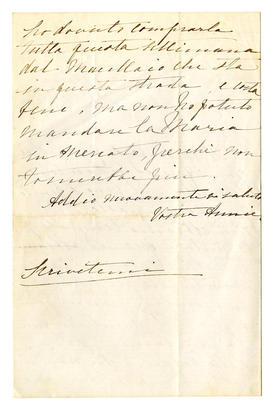 ho dovuto comprarla
tutta questa settimana
dal Macellaio che sta
in questa strada, e costa
ma non ho potuto
mandare la Maria
in mercato, perchè non
tornerebbe più.
Addio nuovamente vi saluto
Vostra Annie.
Scrivetemi